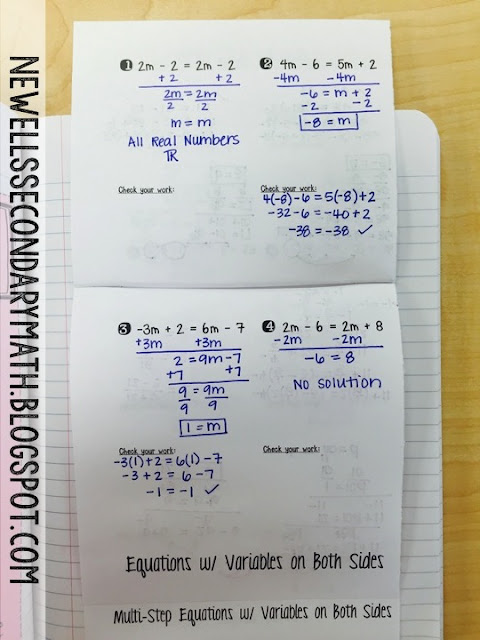 NEWELLSSECONDARYMATH.BLOGSPOT.COM
1 2m - 2 = 2m - 2
+ 2 + 2
2m = 2m
2 2
m = m
All Real Numbers
ℝ
Check your work:
2 4m - 6 = 5m + 2
-4m -4m
-6 = m + 2
-2 - 2
-8 = m
Check your work:
4(-8) - 6 = 5(-8) + 2
-32 - 6 = -40 + 2
-38 = -38 ✓
3 -3m + 2 = 6m - 7
+3m +3m
2 = 9m - 7
+7 +7
9 = 9m
9 9
1 = m
Check your work:
-3(1) + 2 = 6(1) - 7
-3 + 2 = 6 - 7
-1 = -1 ✓
4 2m - 6 = 2m + 8
-2m -2m
-6 = 8
No solution
Check your work:
Equations w/ Variables on Both Sides
Multi-Step Equations w/ Variables on Both Sides